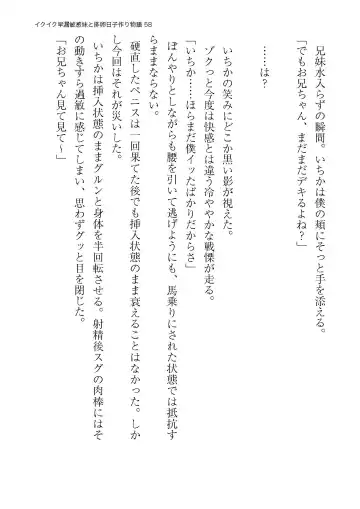 イクイク早漏敏感妹と排卵日子作り物語 58
兄妹水入らずの瞬間。いちかは僕の頬にそっと手を添える。
「でもお兄ちゃん、まだまだデキるよね？」
……は？
いちかの笑みにどこか黒い影が視えた。
ゾクっと今度は快感とは違う冷ややかな戦慄が走る。
「いちか……ほらまだ僕イッたばかりだからさ」
ぼんやりとしながらも腰を引いて逃げようにも、馬乗りにされた状態では抵抗す
らままならない。
硬直したペニスは一回果てた後でも挿入状態のまま衰えることはなかった。しか
し今回はそれが災いした。
いちかは挿入状態のままグルンと身体を半回転させる。射精後スグの肉棒にはそ
の動きすら過敏に感じてしまい、思わずグッと目を閉じた。
「お兄ちゃん見て見て～」